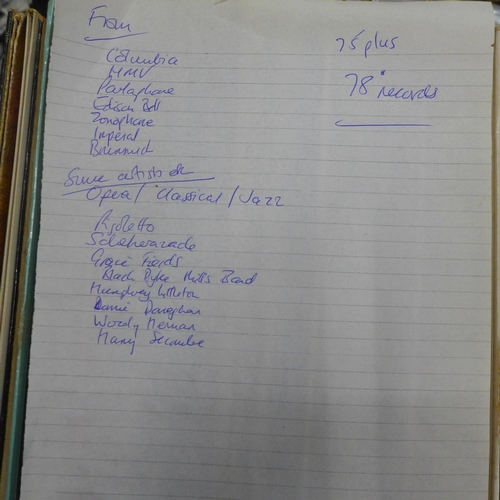 From
75 plus
78" records
Columbia
HMV
Parlaphone
Edison Bell
Zonophone
Imperial
Brunswick
Some artists etc
Opera / Classical / Jazz
Rigoletto
Scheherazade
Gracie Fields
Black Dyke Mills Band
Humphrey Littleton
Lonnie Doneghan
Woody Herman
Harry Secombe